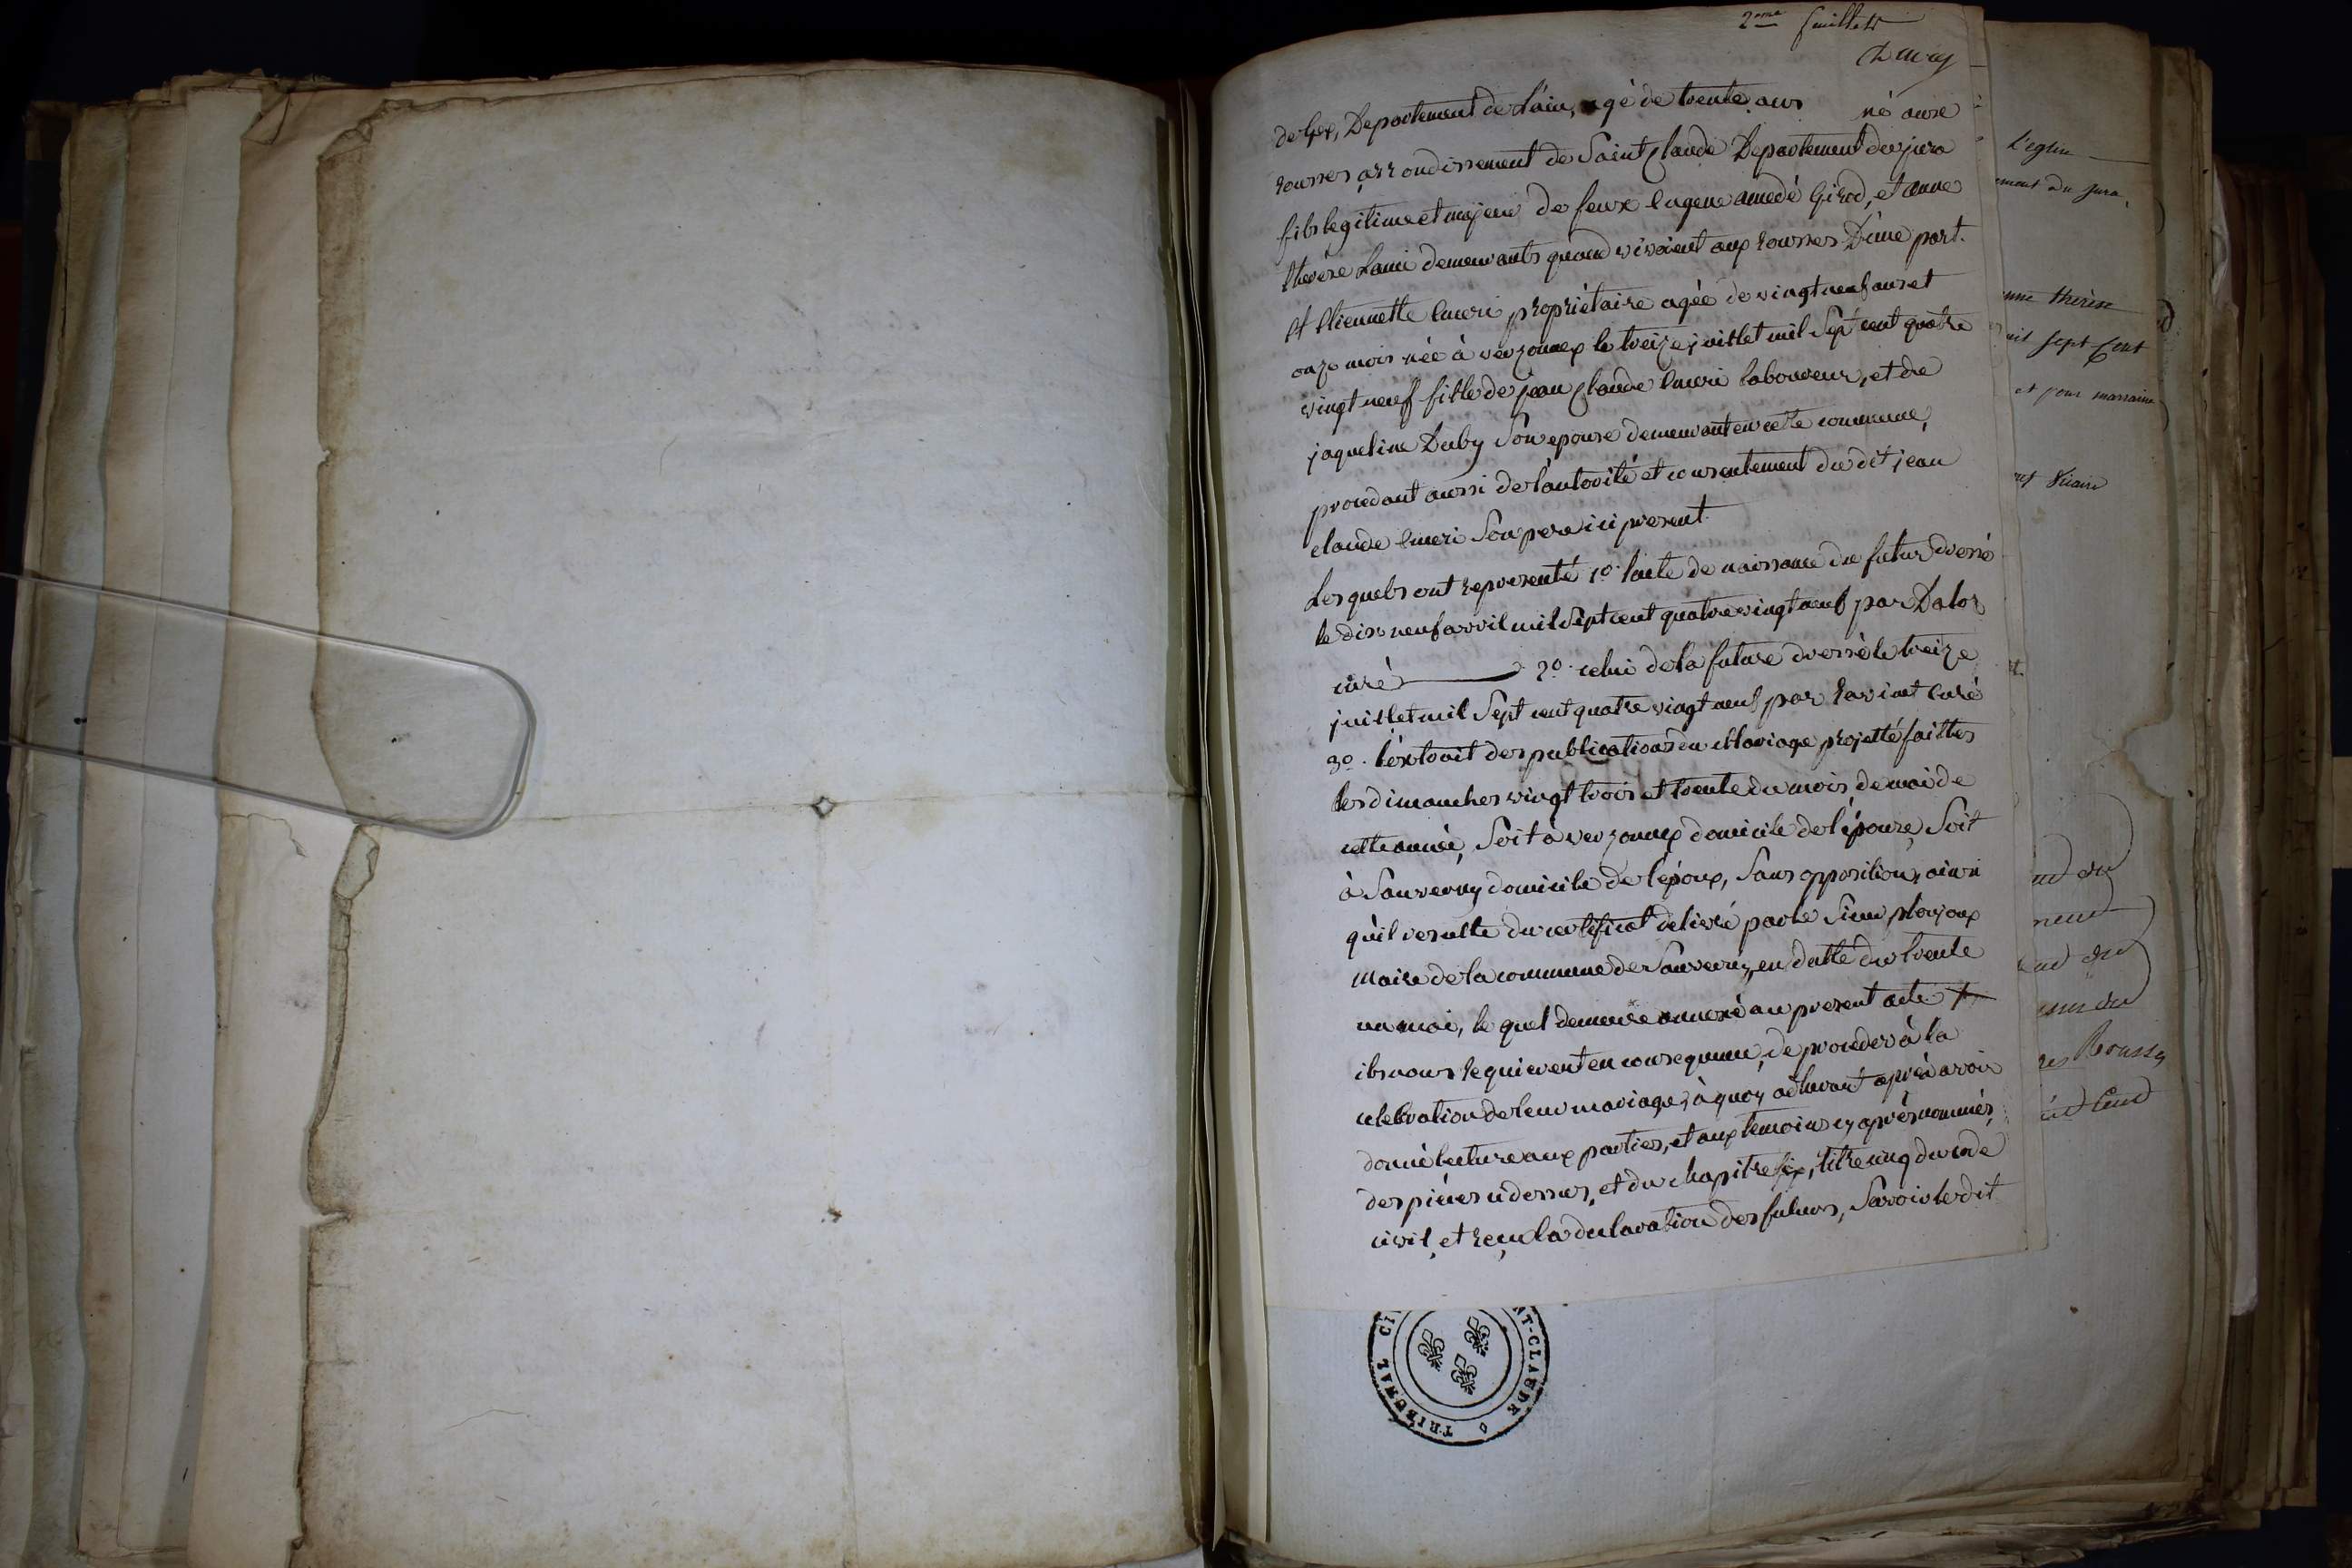 2eme feuillet
de Gex, Departement de l'ain, agé de trente ans né aux
rousses arrondissement de Saint Claude Departement du jura
fils legitime et majeur de feux Eugene amedé Girod, et anne
therèse Lami demeurants quand vivoient aux rousses D'une part.
Et Etiennette Emeri propriétaire agée de vingt neuf ans et
onze mois née à verzonnex le treize juillet mil Sept cent quatre
vingt neuf fille de jean Claude Emeri laboureur, et de
jaqueline Duby Son epouse demeurant en cette commune,
procedant aussi de l'autorité et consentement du dit jean
claude Emeri Son pere ici present.
Lesquels ont representé 1º. l'acte de naissance du futur dressé
le dix neuf avril mil Sept cent quatre vingt neuf par
curé 2º. celui de la future dressé le treize
juillet mil Sept cent quatre vingt neuf par Ravinet Curé
3º. l'extrait des publications du Mariage projetté faittes
les dimanches vingt trois et trente du mois de mai de
cette année, Soit à verzonnex domicile de l'épouse, Soit
à Sauverny domicile de l'époux, Sans opposition, ainsi
qu'il resulte du certificat delivré par le Sieur plonjoux
Maire de la commune de Sauverny, en datte du trente
un mai, le quel demeure annexé au present acte
ils nous requierent en consequence, de proceder à la
celebration de leur mariage; à quoy adherant après avoir
donné lecture aux parties, et aux temoins cy après nommés,
des pièces ci dessus, et du chapitre six, titre cinq du code
civil, et reçu la declaration des futurs, Savoir le dit
L'eglise
ement du jura,
nne thérèse
mil sept cent
et pour marraine
Vicaire
Rousses
TRIBUNAL CI
NT-CLAUDE